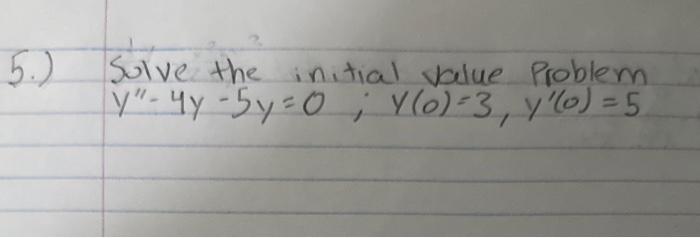 5.) Solve the initial value Problem
y"- 4y - 5y = 0 ; y(0) = 3, y'(0) = 5